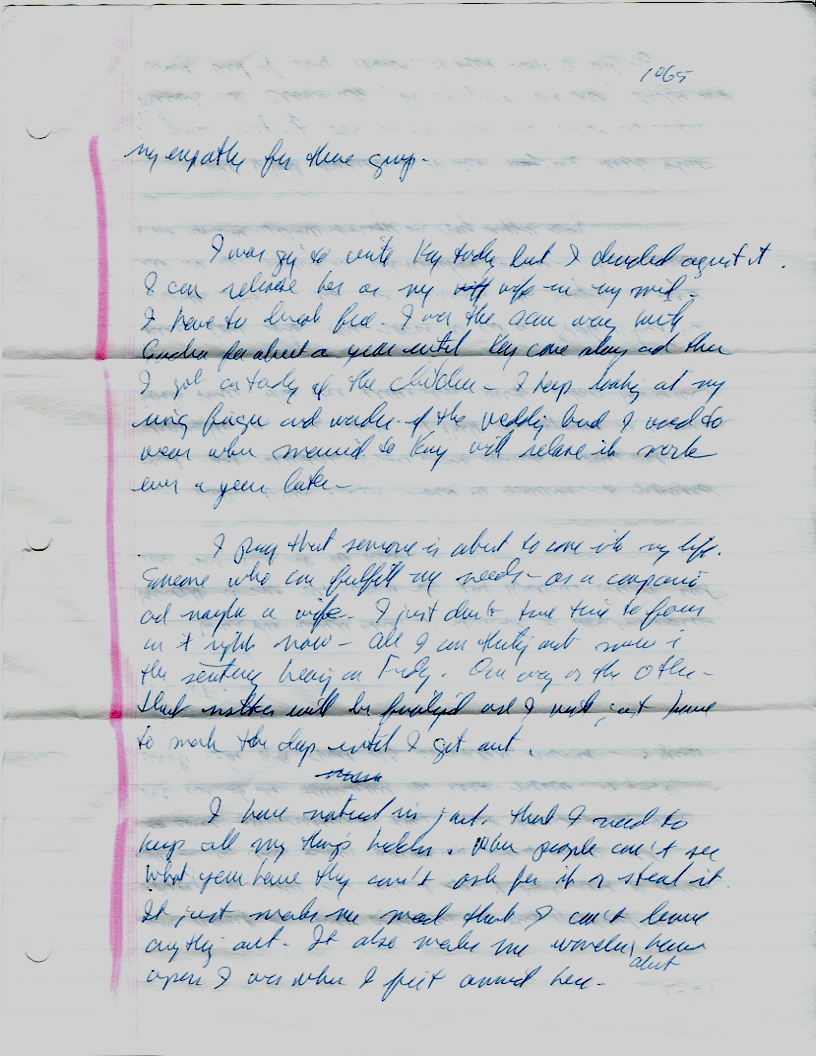 1065
my empathy for these group.
I was going to write Kay today but I decided against it.
I can release her as my wife in my mind.
I have to break free. I was the same way with
for about a year until Kay came along and then
I got custody of the children - I keep looking at my
ring finger and wonder if the wedding band I used to
wear when married to Kay will release its mark
even a year later -
I pray that someone is about to come into my life.
Someone who can fulfill my needs - as a companion
and maybe a wife. I just don't have time to focus
on it right now - All I can think about now is
the sentencing hearing on Friday. One way or the other -
that matter will be finalized and I will just have
to mark the days until I get out.
I have noticed in jail, that I need to
keep all my things hidden. When people can't see
what you have they can't ask for it or steal it.
It just makes me mad that I can't leave
anything out. It also makes me wonder about how
open I was when I first arrived here -